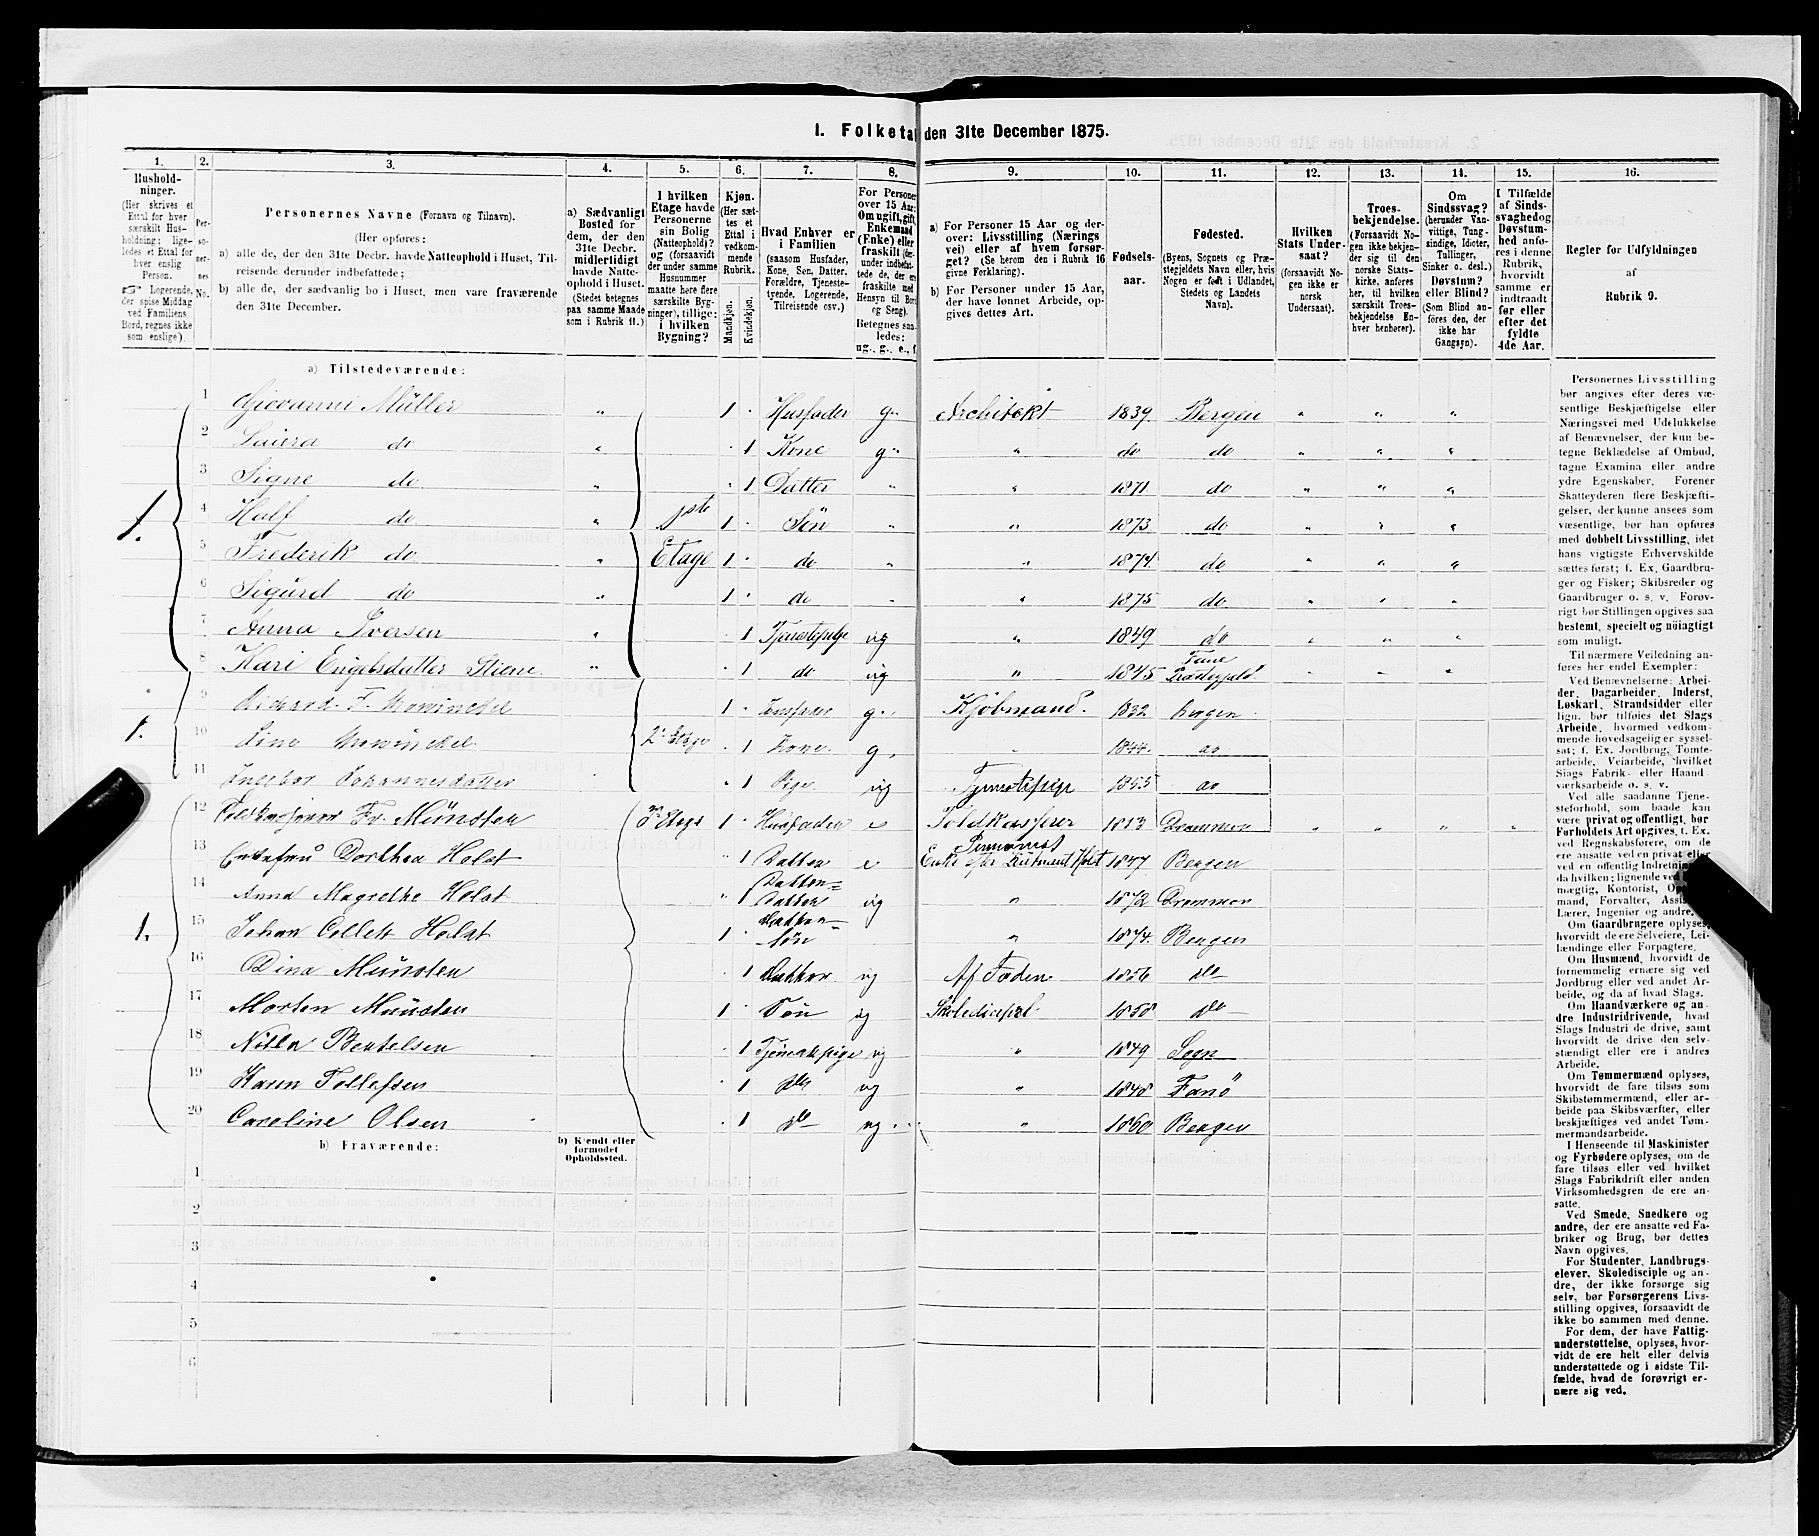 1. Folketal den 31te December 1875.
1. 2. 3. 4. 5. 6. 7. 8. 9. 10. 11. 12. 13. 14. 15. 16.
Husholdninger.
(Her skrives et
Ettal for hver
særskilt Husholdning;
ligeledes et Ettal for
hver enslig
Person.
☞ Logerende,
der spise Middag
ved Familiens
Bord, regnes ikke
som enslige).
Personernes
No.
Personernes Navne (Fornavn og Tilnavn).
(Her opføres:
a) alle de, der den 31te Decbr. havde Natteophold i Huset, Tilreisende derunder indbefattede;
b) alle de, der sædvanlig bo i Huset, men vare fraværende
den 31te December.
a) Sædvanligt
Bosted for
dem, der den
31te Decbr.
midlertidigt
havde Natteophold i Huset.
(Stedet betegnes
paa samme Maade
som i Rubrik 11.)
I hvilken
Etage havde
Personerne
sin Bolig
(Natteophold)?
og (forsaavidt
der under samme
Husnummer
maatte høre flere
særskilte Bygninger), tillige:
i hvilken
Bygning?
Kjøn.
(Her sættes et
Ettal i
vedkommende
Rubrik.
Mandkjøn.
Kvindekjøn.
Hvad Enhver er
i Familien
(saasom Husfader,
Kone, Søn, Datter,
Forældre, Tjenestetyende, Logerende,
Tilreisende osv.)
For Personer
over 15 Aar:
Om ugift, gift,
Enkemand
(Enke) eller
fraskilt
Betegnes saaledes:
ug., g., e., f.
a) For Personer 15 Aar og derover: Livsstilling (Næringsvei) eller af hvem forsørget? (Se herom den i Rubrik 16
givne Forklaring).
b) For Personer under 15 Aar,
der have lønnet Arbeide, opgives dettes Art.
Fødselsaar.
Fødested.
(Byens, Sognets og Præstegjeldets Navn eller, hvis
Nogen er født i Udlandet,
Stedets og Landets
Navn).
Hvilken
Stats Undersaat?
(forsaavidt Nogen ikke er
norsk
Undersaat).
Troesbekjendelse.
(Forsaavidt Nogen ikke bekjender sig til den
norske Statskirke, anføres
her, til hvilken
særskilt Troesbekjendelse Enhver henhører).
Om
Sindssvag?
(herunder Vanvittige, Tungsindige, Idioter,
Tullinger,
Sinker o. desl.)
Døvstum?
eller Blind?
(Som Blind anføres den, der
ikke har
Gangsyn).
I Tilfælde
af Sindssvaghed og
Døvstumhed anføres i denne
Rubrik,
hvorvidt
samme er
indtraadt
før eller
efter det
fyldte
4de Aar.
Regler for Udfyldningen
af
Rubrik 9.
a) Tilstedeværende:
1 Giovanni Müller " 1 Husfader g. Architekt 1839 Bergen " " "
2 Laura do " 1 Kone g. " do do " " "
3 Signe do " 1 Datter " " 1871 do " " "
1. 4 Half do " 1ste 1 Søn " " 1873 do " " "
5 Frederik do " Etage 1 do " " 1874 do " " "
6 Sigurd do " 1 do " " 1875 do " " "
7 Anna Iversen " 1 Tjenestepige ug " 1849 do " " "
8 Kari Engelsdatter Stiene " 1 do ug " 1845 Fane Præstegjeld " " "
9 Richard F. Mowinckel 1 Husfader g. Kjøbmand 1832 bergen
1. 10 Sina Mowinckel 2. Etage 1 Kone g. " 1844 do
11 Ingebor Johannesdatter 1 Pige ug Tjenestepige 1855 do
12 Toldkasserer Fr. Münster 3. Etage 1 Husfader e Toldkasserer 1813 Drammen " " " "
13 Enkefru Dorthea Holst " 1 Datter e Enke efter Premier Lieutnant Holst 1847 Bergen
14 Anna Magrethe Holst " 1 Datter=Datter ug " 1872 Drammen
1. 15 Johan Collett Holst 1 Datter=søn " 1874 Bergen
16 Dina Münster 1 Datter ug Af Faderen 1856 do
17 Morten Münster 1 Søn ug Skolediscipel 1858 do
18 Nilla Bertelsen 1 Tjenestepige ug " 1849 Sogn
19 Karen Tollefsen 1 do ug " 1848 Fanö
20 Caroline Olsen 1 do ug " 1860 Bergen
b) Fraværende:
b) Kjendt eller
formodet
Opholdssted.
1
2
3
4
5
6
Personernes Livsstilling
bør angives efter deres væsentlige Beskjæftigelse eller
Næringsvei med Udelukkelse
af Benævnelser, der kun betegne Beklædelse af Ombud,
tagne Examina eller andre
ydre Egenskaber. Forener
Skatteyderen flere Beskjæftigelser, der kunne ansees som
væsentlige, bør han opføres
med dobbelt Livsstilling, idet
hans vigtigste Erhvervskilde
sættes først; f. Ex. Gaardbruger og Fisker; Skibsreder og
Gaardbruger o. s. v. Forøvrigt bør Stillingen opgives saa
bestemt, specielt og nöiagtigt
som muligt.
Til nærmere Veiledning anføres her endel Exempler:
Ved Benævnelserne: Arbeider, Dagarbeider, Inderst,
Løskarl, Strandsidder eller
lign. bør tilføies det Slags
Arbeide, hvormed vedkommende hovedsagelig er sysselsat; f. Ex. Jordbrug, Tomtearbeide, Veiarbeide, hvilket
Slags Fabrik- eller Haandværksarbeide o. s. v.
Ved alle saadanne Tjenesteforhold, som baade kan
være privat og offentligt, bør
Forholdets Art opgives, f. Ex.
ved Regnskabsførere, om de
ere ansatte ved en privat eller
ved en offentlig Indretning
da hvilken; lignende
Om Gaardbrugere oplyses,
hvorvidt de ere Selveiere, Leilændinge eller Forpagtere.
Om Husmænd, hvorvidt de
fornemmelig ernære sig ved
Jordbrug eller ved andet Arbeide, og da af hvad Slags.
Om Haandværkere og andre Industridrivende, hvad
Slags Industri de drive, samt
hvorvidt de drive den selvstændigt eller ere i andres
Arbeide.
Om Tømmermænd oplyses,
hvorvidt de fare tilsøs som
Skibstømmermænd, eller arbeide paa Skibsværfter, eller
beskjæftiges ved andet Tømmermandsarbeide.
I Henseende til Maskinister
og Fyrbødere oplyses, om de
fare tilsøs eller ved hvilket
Slags Fabrikdrift eller anden
Virksomhedsgren de ere ansatte.
Ved Smede, Snedkere og
andre, der ere ansatte ved Fabriker og Brug, bør dettes
Navn opgives.
For Studenter, Landbrugselever, Skoledisciple og andre, der ikke forsørge sig
selv, bør Forsørgerens Livsstilling opgives, forsaavidt de
ikke bo sammen med denne.
For dem, der have Fattigunderstøttelse, oplyses, hvorvidt de ere helt eller delvis
understøttede og i sidste Tilfælde, hvad de forøvrigt ernære sig ved.